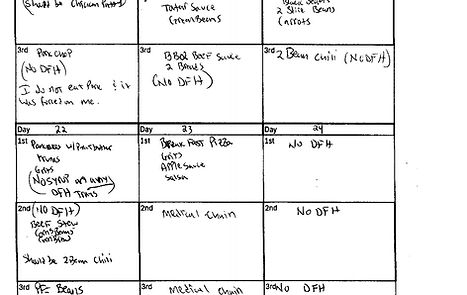 (Should be Chicken Patty)
Tator Sauce
Green Beans
2 Slice Beans
Carrots
3rd Pork Chop
(No DFH)
I do not eat Pork & it
was forced on me.
3rd BBQ Beef Sauce
2 Breads
(No DFH)
3rd 2 Bean Chili (No DFH)
Day 22
Day 23
Day 24
1st Pancakes w/ Peanutbutter
Grits
(No Syrup on
DFH Trays
1st Breakfast Pizza
Grits
Applesauce
Salsa
1st No DFH
2nd (No DFH)
Beef Stew
Should be 2 Bean Chili
2nd Medical Chain
2nd No DFH
3rd Beans
3rd Medical Chain
3rd No DFH